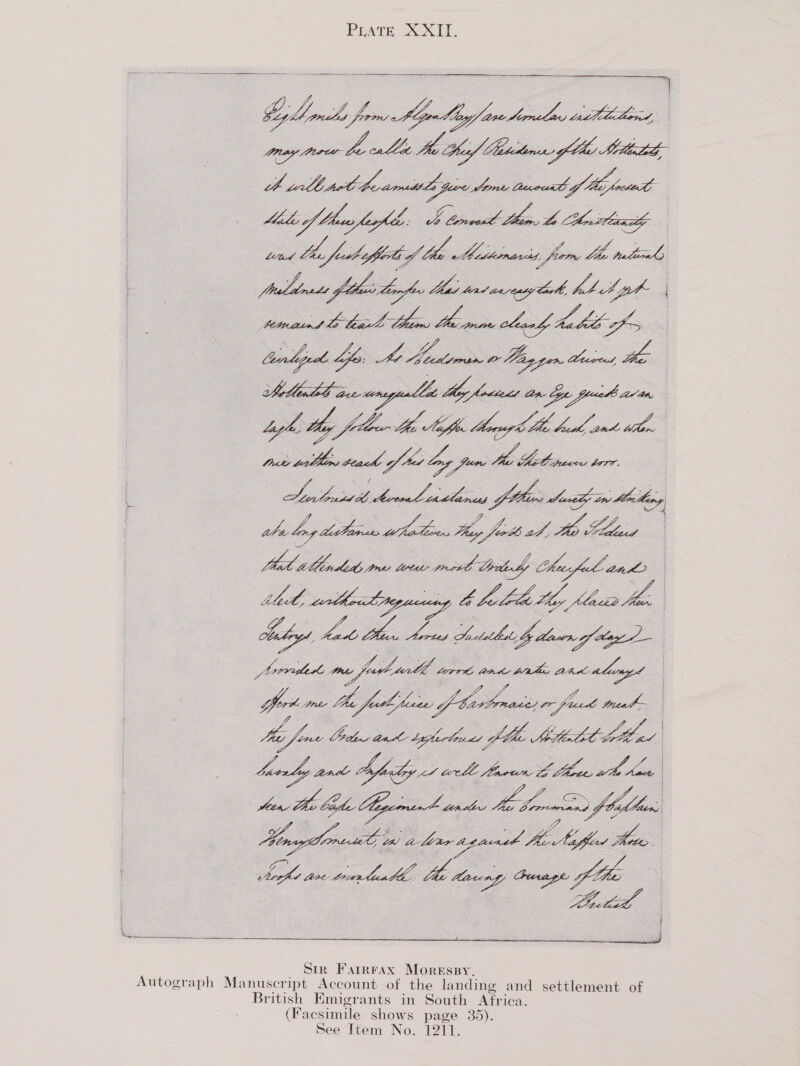 PLATE XXII.
Eight miles from Algoa Bay/ are similar institutions,
may now be call'd the Chief Residence of the Hottentots,
it will not be amiss to give some account of the present
State of these people: To Convert them to Christianity
was the first efforts of the Missionaries, from the natural
mildness of their temper this was an easy task, but it yet
remains to teach them the more cleanly habits of
Civilized life: As Herdsmen or Waggon drivers, the
Hottentots are unequall'd they possess an Eye quick as an
Eagle, they follow the Kaffer through the bush, and when
once within reach of his long gun the Shot never errs.
I witness'd several instances of their surety in striking
at a long distance whatever they fir'd at, the Soldiers
that attended me were most Orderly Cheerful and
alert, without requiring to be told they placed their
Sentrys, had their horses saddled by dawn of day
provided me first with wood and water and always
offerd me the first piece of Carbonaic, or fried meat
the fine Order and expertness of the Hottentot both as
Cavalry and Infantry is well known to those who have
seen the Cape Regiment under the Command of Captain
Henry Somerset, in a War against the Kaffers those
Troops are invaluable, the daring Courage of the
British
SIR FAIRFAX MORESBY.
Autograph Manuscript Account of the landing and settlement of
British Emigrants in South Africa.
(Facsimile shows page 35).
See Item No. 1211.